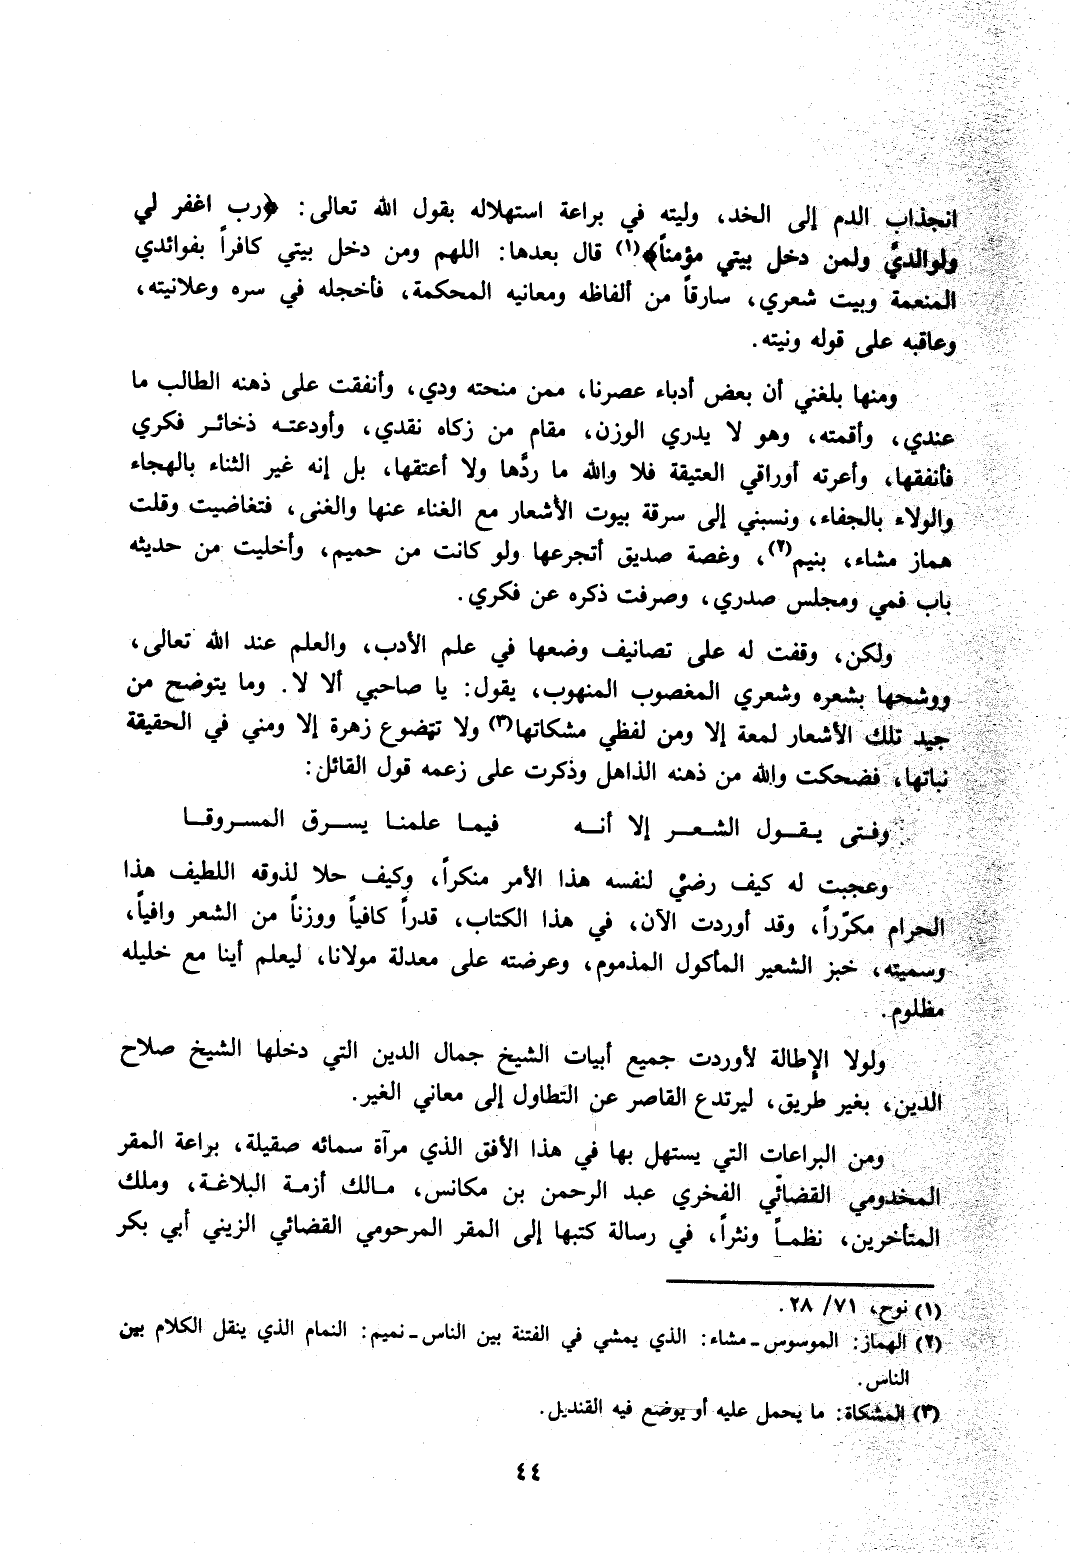 انجذاب الدم إلى الخد، وليته في براعة استهلاله بقول الله تعالى: ﴿رب اغفر لي
ولوالديَّ ولمن دخل بيتي مؤمناً﴾(١) قال بعدها: اللهم ومن دخل بيتي كافراً بفوائدي
المنعمة وبيت شعري، سارقاً من ألفاظه ومعانيه المحكمة، فأخجله في سره وعلانيته،
وعاقبه على قوله ونيته.
ومنها بلغني أن بعض أدباء عصرنا، ممن منحته ودي، وأنفقت على ذهنه الطالب ما
عندي، وأقمته، وهو لا يدري الوزن، مقام من زكاه نقدي، وأودعته ذخائر فكري
فأنفقها، وأعرته أوراقي العتيقة فلا والله ما ردَّها ولا أعتقها، بل إنه غير الثناء بالهجاء
والولاء بالجفاء، ونسبني إلى سرقة بيوت الأشعار مع الغناء عنها والغنى، فتغاضيت وقلت
هماز مشاء، بنيم(٢)، وغصة صديق أتجرعها ولو كانت من حميم، وأخليت من حديثه
باب فمي ومجلس صدري، وصرفت ذكره عن فكري.
ولكن، وقفت له على تصانيف وضعها في علم الأدب، والعلم عند الله تعالى،
ووشحها بشعره وشعري المغصوب المنهوب، يقول: يا صاحبي ألا لا. وما يتوضح من
جيد تلك الأشعار لمعة إلا ومن لفظي مشكاتها(٣) ولا تتضوع زهرة إلا ومني في الحقيقة
نباتها، فضحكت والله من ذهنه الذاهل وذكرت على زعمه قول القائل:
وفتى يقول الشعر إلا أنه فيما علمنا يسرق المسروقا
وعجبت له كيف رضيْ لنفسه هذا الأمر منكراً، وكيف حلا لذوقه اللطيف هذا
الحرام مكرّراً، وقد أوردت الآن، في هذا الكتاب، قدراً كافياً ووزناً من الشعر وافياً،
وسميته، خبز الشعير المأكول المذموم، وعرضته على معدلة مولانا، ليعلم أينا مع خليله
مظلوم.
ولولا الإطالة لأوردت جميع أبيات الشيخ جمال الدين التي دخلها الشيخ صلاح
الدين، بغير طريق، ليرتدع القاصر عن التطاول إلى معاني الغير.
ومن البراعات التي يستهل بها في هذا الأفق الذي مرآة سمائه صقيلة، براعة المقر
المخدومي القضائي الفخري عبد الرحمن بن مكانس، مالك أزمة البلاغة، وملك
المتأخرين، نظماً ونثراً، في رسالة كتبها إلى المقر المرحومي القضائي الزيني أبي بكر
(١) نوح، ٧١/ ٢٨.
(٢) الهماز: الموسوس ـ مشاء: الذي يمشي في الفتنة بين الناس ـ نميم: النمام الذي ينقل الكلام بين
الناس.
(٣) المشكاة: ما يحمل عليه أو يوضع فيه القنديل.
٤٤